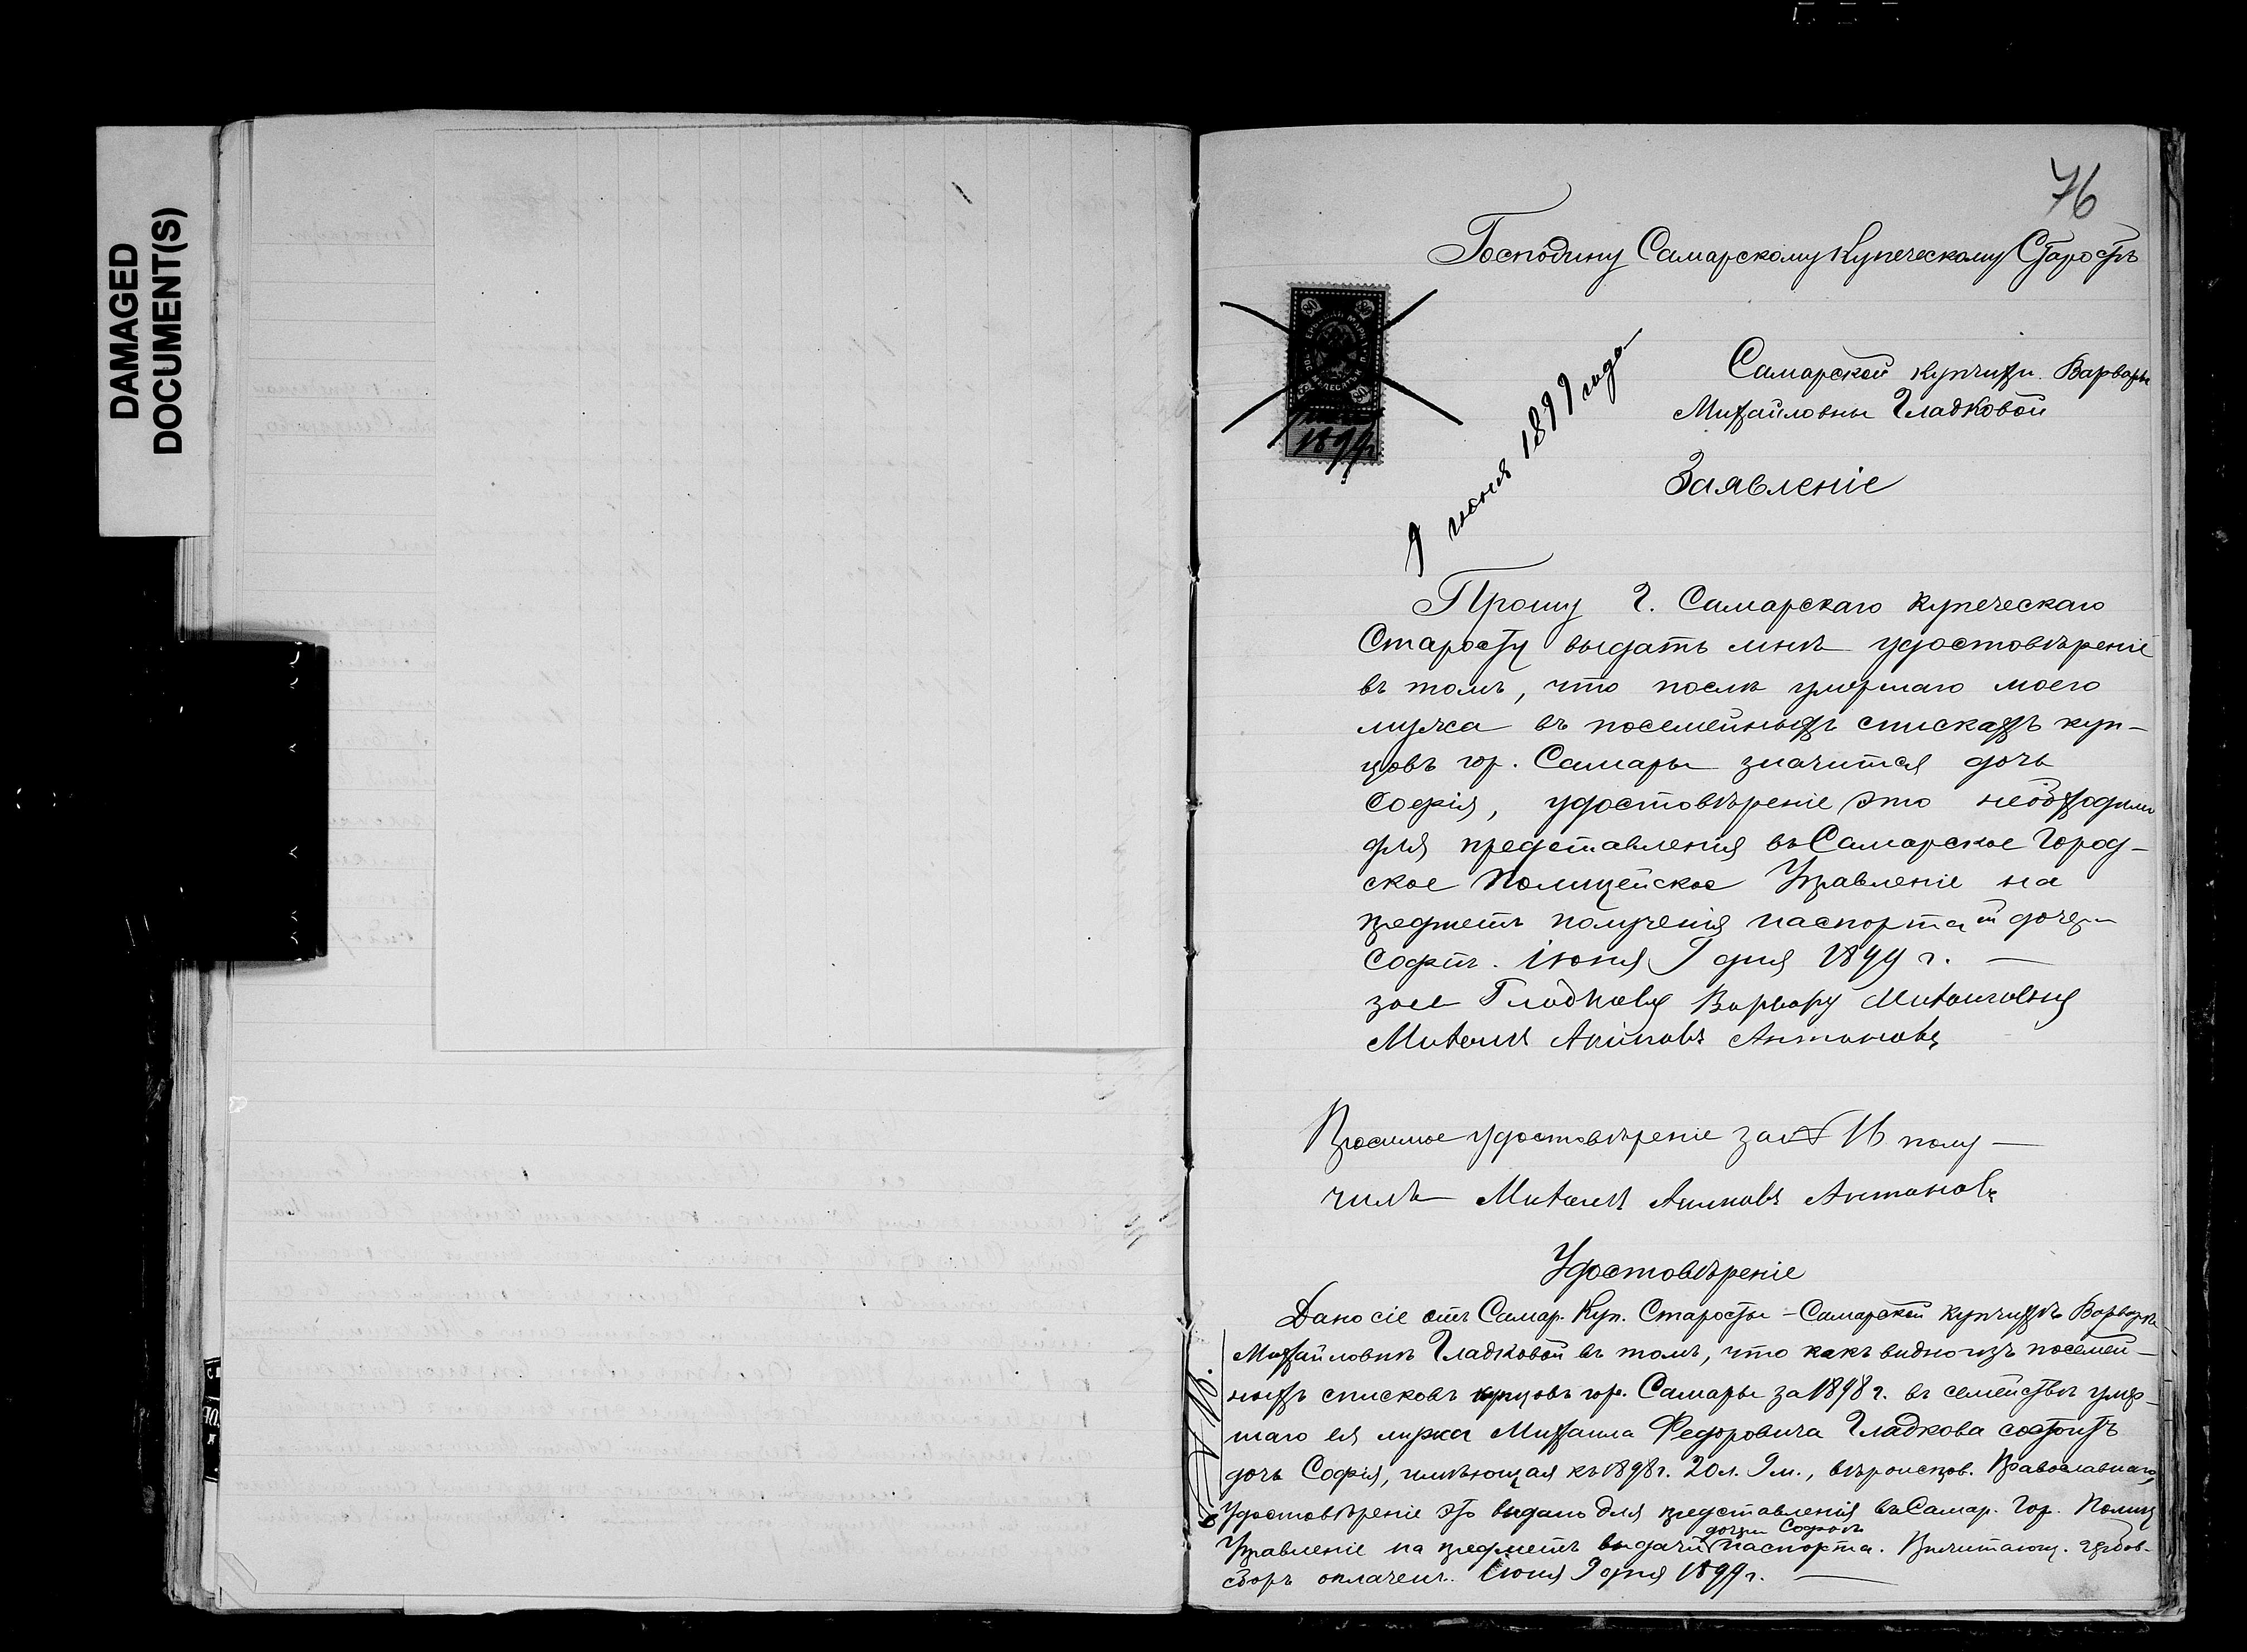 DAMAGED
DOCUMENT(S)
76
Господину Самарскому Купеческому Старостѣ
Самарской купчихи Варвары
Михайловны Гладковой
9 июня 1899 года
1899
Заявленіе
Прошу Г. Самарскаго купеческаго
Старосту выдать мнѣ удостовѣреніе
въ томъ, что послѣ умершаго моего
мужа въ посемейныхъ спискахъ куп-
цовъ гор. Самары значится дочь
Софія, удостовѣреніе это необходимо
для представленія въ Самарское Город-
ское Полицейское Управленіе на
предметъ полученія паспорта дочери
Софіи. Іюня 9 дня 1899 г. —
Гладкову Варвару Михайловну
Антоновъ
Просимое удостовѣреніе за № 16 полу-
чилъ Антоновъ
Удостовѣреніе
Дано сіе отъ Самар. Куп. Старосты - Самарской купчихѣ Варварѣ
Михайловнѣ Гладковой въ томъ, что какъ видно изъ посемей-
ныхъ списковъ купцовъ гор. Самары за 1898 г. въ семействѣ умер-
шаго ея мужа Михаила Федоровича Гладкова состоитъ
дочь Софія, имѣющая къ 1898 г. 20 л. 9 м., вѣроисцов. Православнаго,
Удостовѣреніе это выдано для представленія въ Самар. Гор. Полиц
Управленіе на предметъ выдачи дочери Софіи паспорта. гербов.
сборъ оплаченъ. Іюня 9 дня 1899 г. —
№ 16.